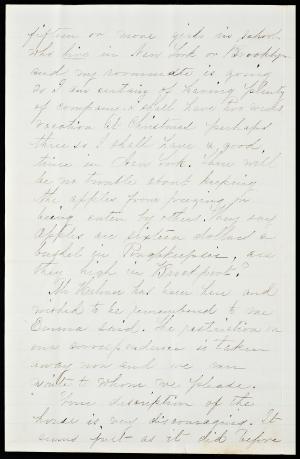 fifteen or more girls in school
who live in New York or Brooklyn
and my roommate is going
so I am certain of having plenty
of company. I shall have two weeks
vacation at Christmas perhaps
three so I shall have a good
time in New York. There will
be no trouble about keeping
the apples from freezing or
being eaten by others. They say
apples are sixteen dollars a
bushel in Poughkeepsie, are
they high in Brockport?
Mr has been here and
wished to be remembered to me
Emma said. The restriction on
our correspondence is taken
away now and we can
write to whom we please.
Your discription of the
house is very discouraging. It
seems just as it did before